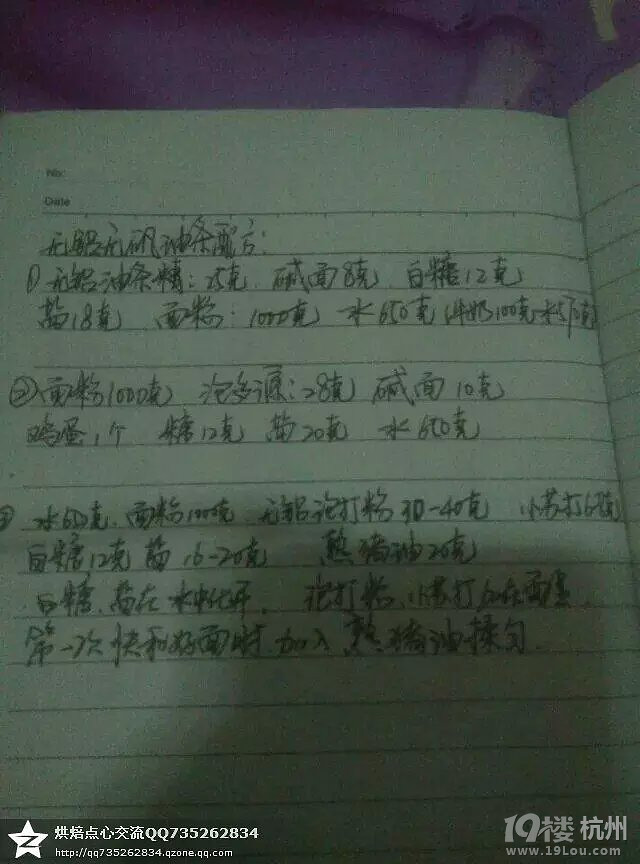 No:
Date
无铝无矾油条配方:
① 无铝油条精:25克 碱面8克 白糖12克
盐18克 面粉:1000克 水650克(牛奶100克水
② 面粉1000克 泡多源:28克 碱面10克
鸡蛋1个 糖12克 盐20克 水650克
③ 水650克 面粉1000克 无铝泡打粉30-40克 小苏打
白糖12克 盐16-20克 熟猪油20克
白糖、盐在水中化开. 泡打粉、小苏打加在面里
第一次快和好面时加入熟猪油揉匀.
烘焙点心交流QQ735262834
http://qq735262834.qzone.qq.com
19楼 杭州
www.19lou.com